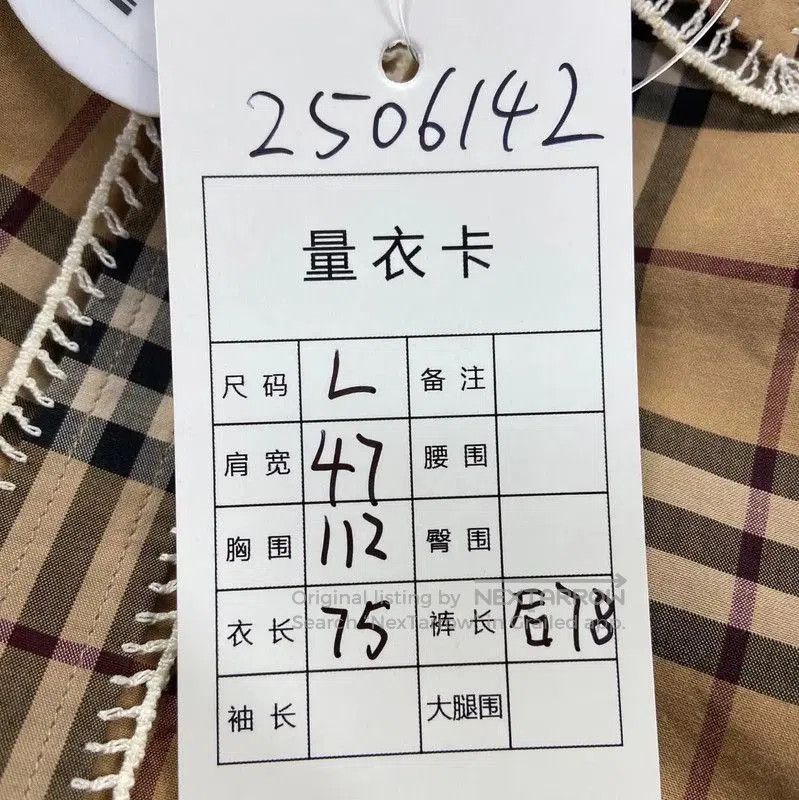 2506142
量衣卡
尺码 L 备注
肩宽 47 腰围
胸围 112 臀围
Original listing by NEXTARROW
Search NexTarrow on Grailed app.
衣长 75 裤长 后78
袖长 大腿围